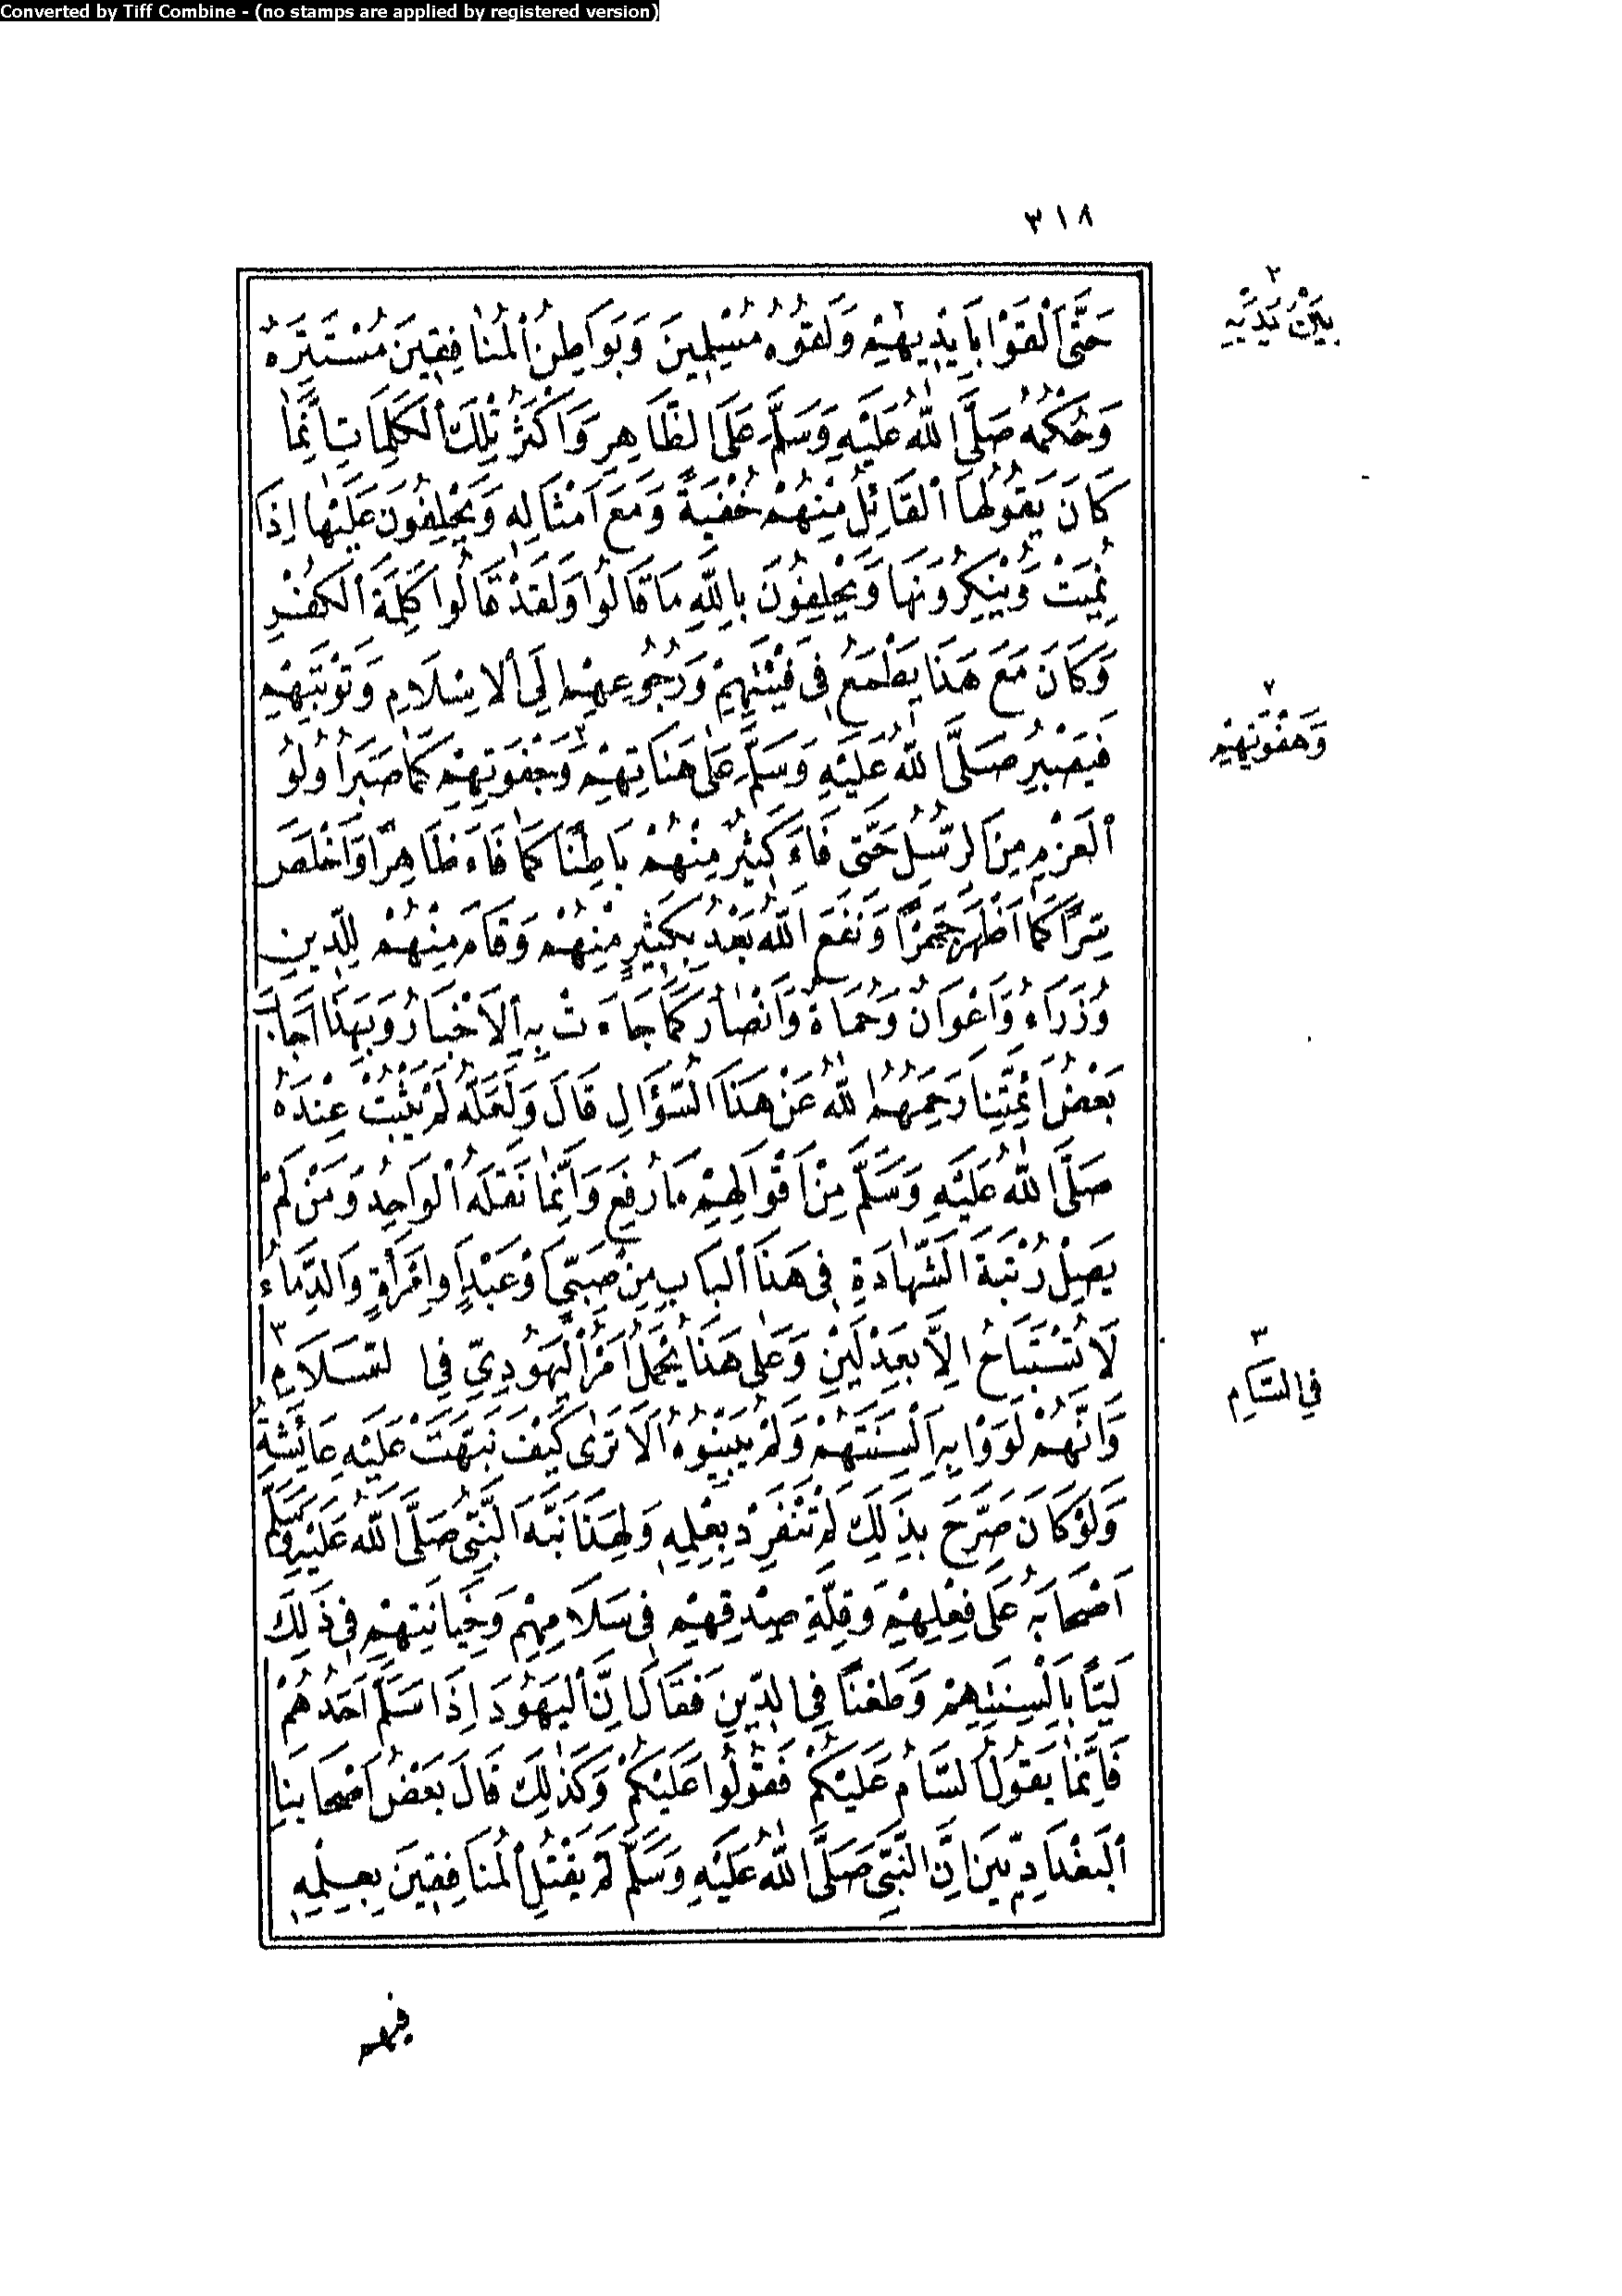 Converted by Tiff Combine - (no stamps are applied by registered version)
٣١٨
حَتَّى اَلْقَوْا بِاَيْدِيهِمْ وَلَقُوهُ مُسْلِمِينَ وَبَوَاطِنُ الْمُنَافِقِينَ مُسْتَتِرَةٌ
وَحُكْمُهُ صَلَّى اللهُ عَلَيْهِ وَسَلَّمَ عَلَى الظَّاهِرِ وَاَكْثَرُ تِلْكَ الْكَلِمَاتِ اِنَّمَا
كَانَ يَقُولُهَا الْقَائِلُ مِنْهُمْ خُفْيَةً وَمَعَ اَمْثَالِهِ وَيَحْلِفُونَ عَلَيْهَا اِذَا
نُمِيَتْ وَيُنْكِرُونَهَا وَيَحْلِفُونَ بِاللهِ مَا قَالُوا وَلَقَدْ قَالُوا كَلِمَةَ الْكُفْرِ
وَكَانَ مَعَ هَذَا يَطْمَعُ فِى فَيْئَتِهِمْ وَرُجُوعِهِمْ اِلَى الْاِسْلَامِ وَتَوْبَتِهِمْ
فَيَصْبِرُ صَلَّى اللهُ عَلَيْهِ وَسَلَّمَ عَلَى هَنَاتِهِمْ وَجَفْوَتِهِمْ كَمَا صَبَرَ اُولُو
الْعَزْمِ مِنَ الرُّسُلِ حَتَّى فَاءَ كَثِيرٌ مِنْهُمْ بَاطِنًا كَمَا فَاءَ ظَاهِرًا وَاَخْلَصَ
سِرًّا كَمَا اَظْهَرَ جَهْرًا وَنَفَعَ اللهُ بَعْدُ بِكَثِيرٍ مِنْهُمْ وَقَامَ مِنْهُمْ لِلدِّينِ
وُزَرَاءُ وَاَعْوَانٌ وَحُمَاةٌ وَاَنْصَارٌ كَمَا جَاءَتْ بِهِ الْاَخْبَارُ وَبِهَذَا اَجَابَ
بَعْضُ اَئِمَّتِنَا رَحِمَهُمُ اللهُ عَنْ هَذَا السُّؤَالِ قَالَ وَلَعَلَّهُ لَمْ يَثْبُتْ عِنْدَهُ
صَلَّى اللهُ عَلَيْهِ وَسَلَّمَ مِنْ اَقْوَالِهِمْ مَا رُفِعَ وَاِنَّمَا نَقَلَهُ الْوَاحِدُ وَمَنْ لَمْ
يَصِلْ رُتْبَةَ الشَّهَادَةِ فِى هَذَا الْبَابِ مِنْ صَبِىٍّ اَوْ عَبْدٍ اَوِ امْرَأَةٍ وَالدِّمَاءُ
لَا تُسْتَبَاحُ اِلَّا بِعَدْلَيْنِ وَعَلَى هَذَا يُحْمَلُ اَمْرُ الْيَهُودِىِّ فِى السَّلَامِ ٣
وَاَنَّهُمْ لَوَوْا بِهِ اَلْسِنَتَهُمْ وَلَمْ يُبَيِّنُوهُ اَلَا تَرَى كَيْفَ نَبَّهَتْ عَلَيْهِ عَائِشَةُ
وَلَوْ كَانَ صَرَّحَ بِذَلِكَ لَمْ تَنْفَرِدْ بِعِلْمِهِ وَلِهَذَا نَبَّهَ النَّبِىُّ صَلَّى اللهُ عَلَيْهِ وَسَلَّمَ
اَصْحَابَهُ عَلَى فِعْلِهِمْ وَقِلَّةِ صِدْقِهِمْ فِى سَلَامِهِمْ وَخِيَانَتِهِمْ فِى ذَلِكَ
لَيًّا بِاَلْسِنَتِهِمْ وَطَعْنًا فِى الدِّينِ فَقَالَ اِنَّ الْيَهُودَ اِذَا سَلَّمَ اَحَدُهُمْ
فَاِنَّمَا يَقُولُ السَّامُ عَلَيْكُمْ فَقُولُوا عَلَيْكُمْ وَكَذَلِكَ قَالَ بَعْضُ اَصْحَابِنَا
الْبَغْدَادِيِّينَ اِنَّ النَّبِىَّ صَلَّى اللهُ عَلَيْهِ وَسَلَّمَ لَمْ يَقْتُلِ الْمُنَافِقِينَ بِعِلْمِهِ
فيهم
٢
بَيْنَ يَدَيْهِ
٢
وَهَفْوَتِهِمْ
٣
فِى السَّامِ